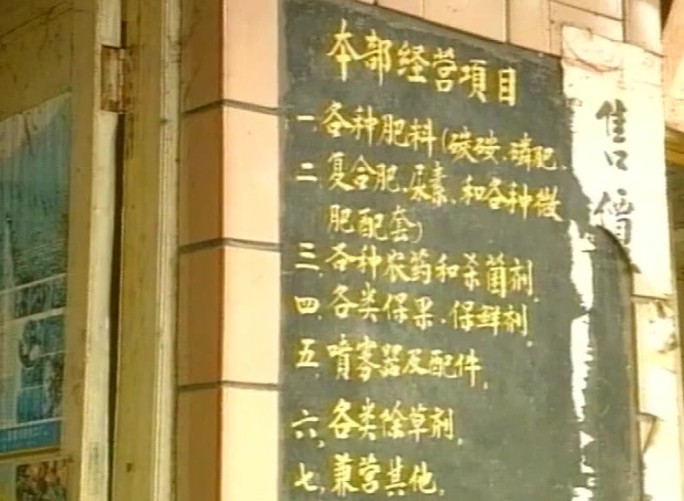 本部经营项目
一.各种肥料(碳铵.磷肥.
二.复合肥.尿素.和各种微
肥配套)
三.各种农药和杀菌剂.
四.各类保果.保鲜剂.
五.喷雾器及配件.
六.各类除草剂.
七.兼营其他.
售價